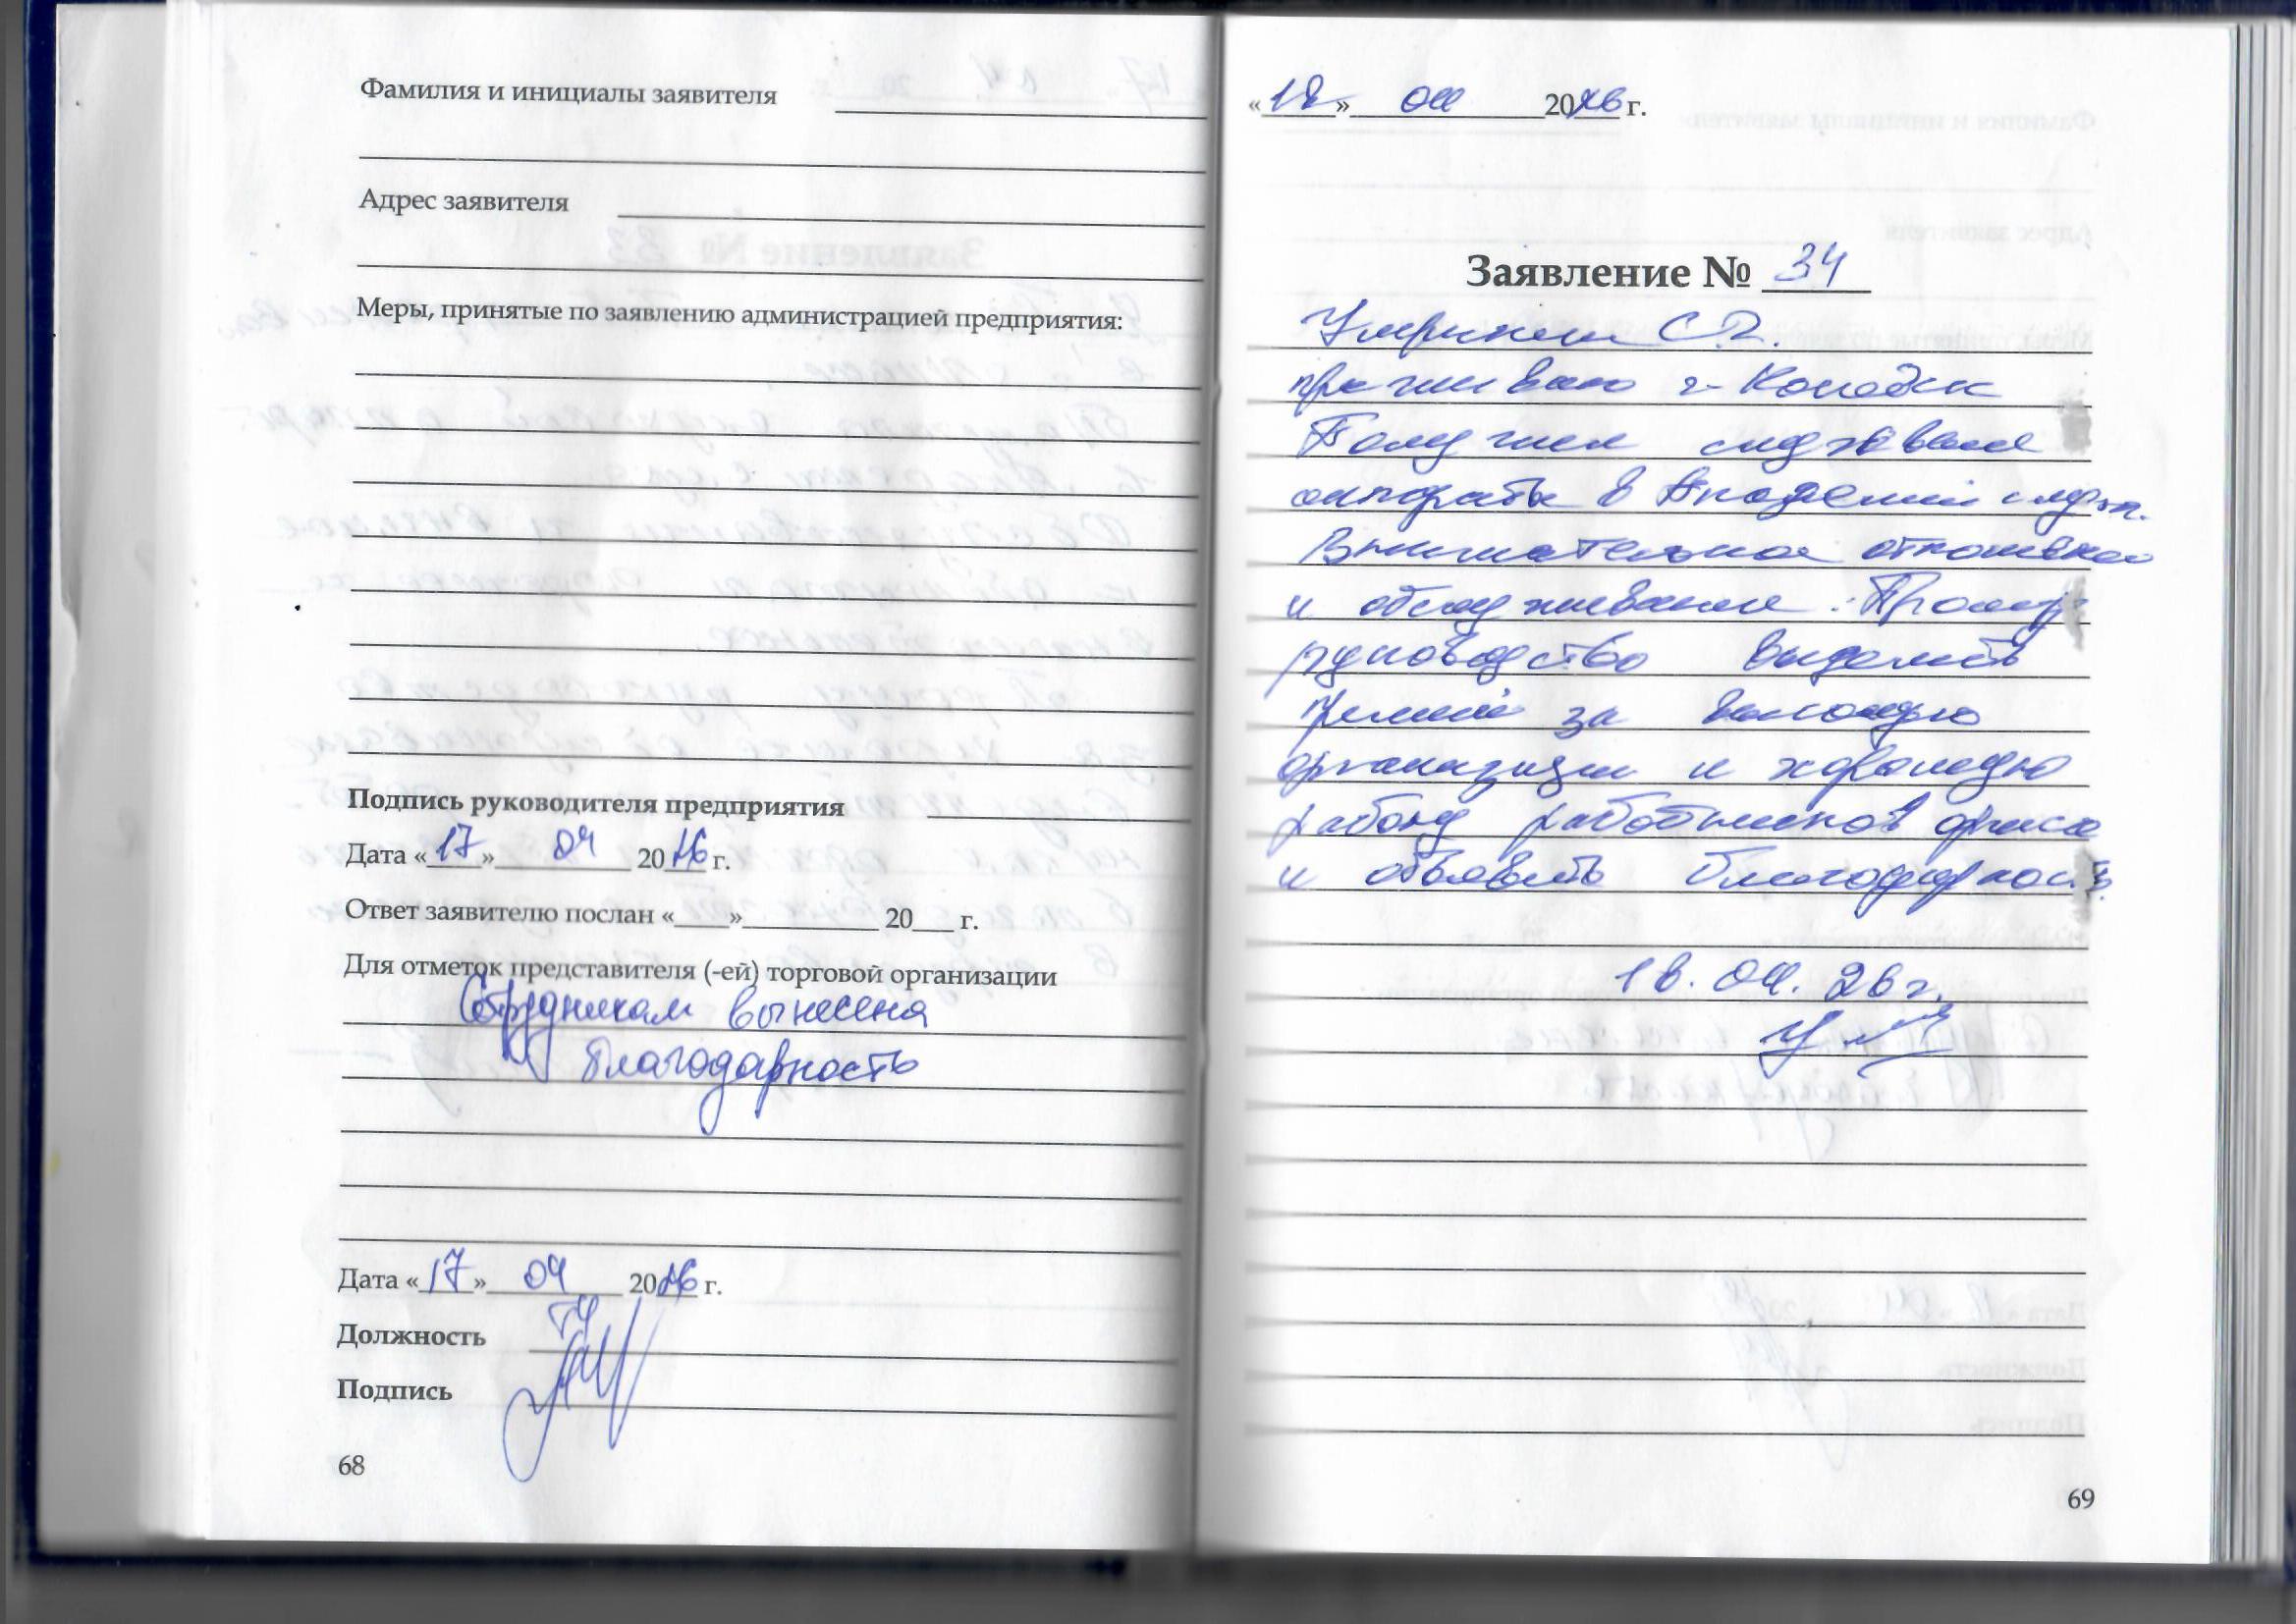 Фамилия и инициалы заявителя
Адрес заявителя
Меры, принятые по заявлению администрацией предприятия:
Подпись руководителя предприятия
Дата «17» 04 2026 г.
Ответ заявителю послан «____»__________ 20___ г.
Для отметок представителя (-ей) торговой организации
Сотрудникам вынесена
благодарность
Дата «17» 04 2026 г.
Должность
Подпись
68
«18» 04 2026 г.
Заявление № 34
С.
проживаю г.
Получил слуховые
аппараты в Академии слуха.
Внимательное отношение
и обслуживание. Прошу
руководство выделить
премии за
организации и хорошую
работу работников офиса
и объявить благодарность.
18.04.26 г.
69